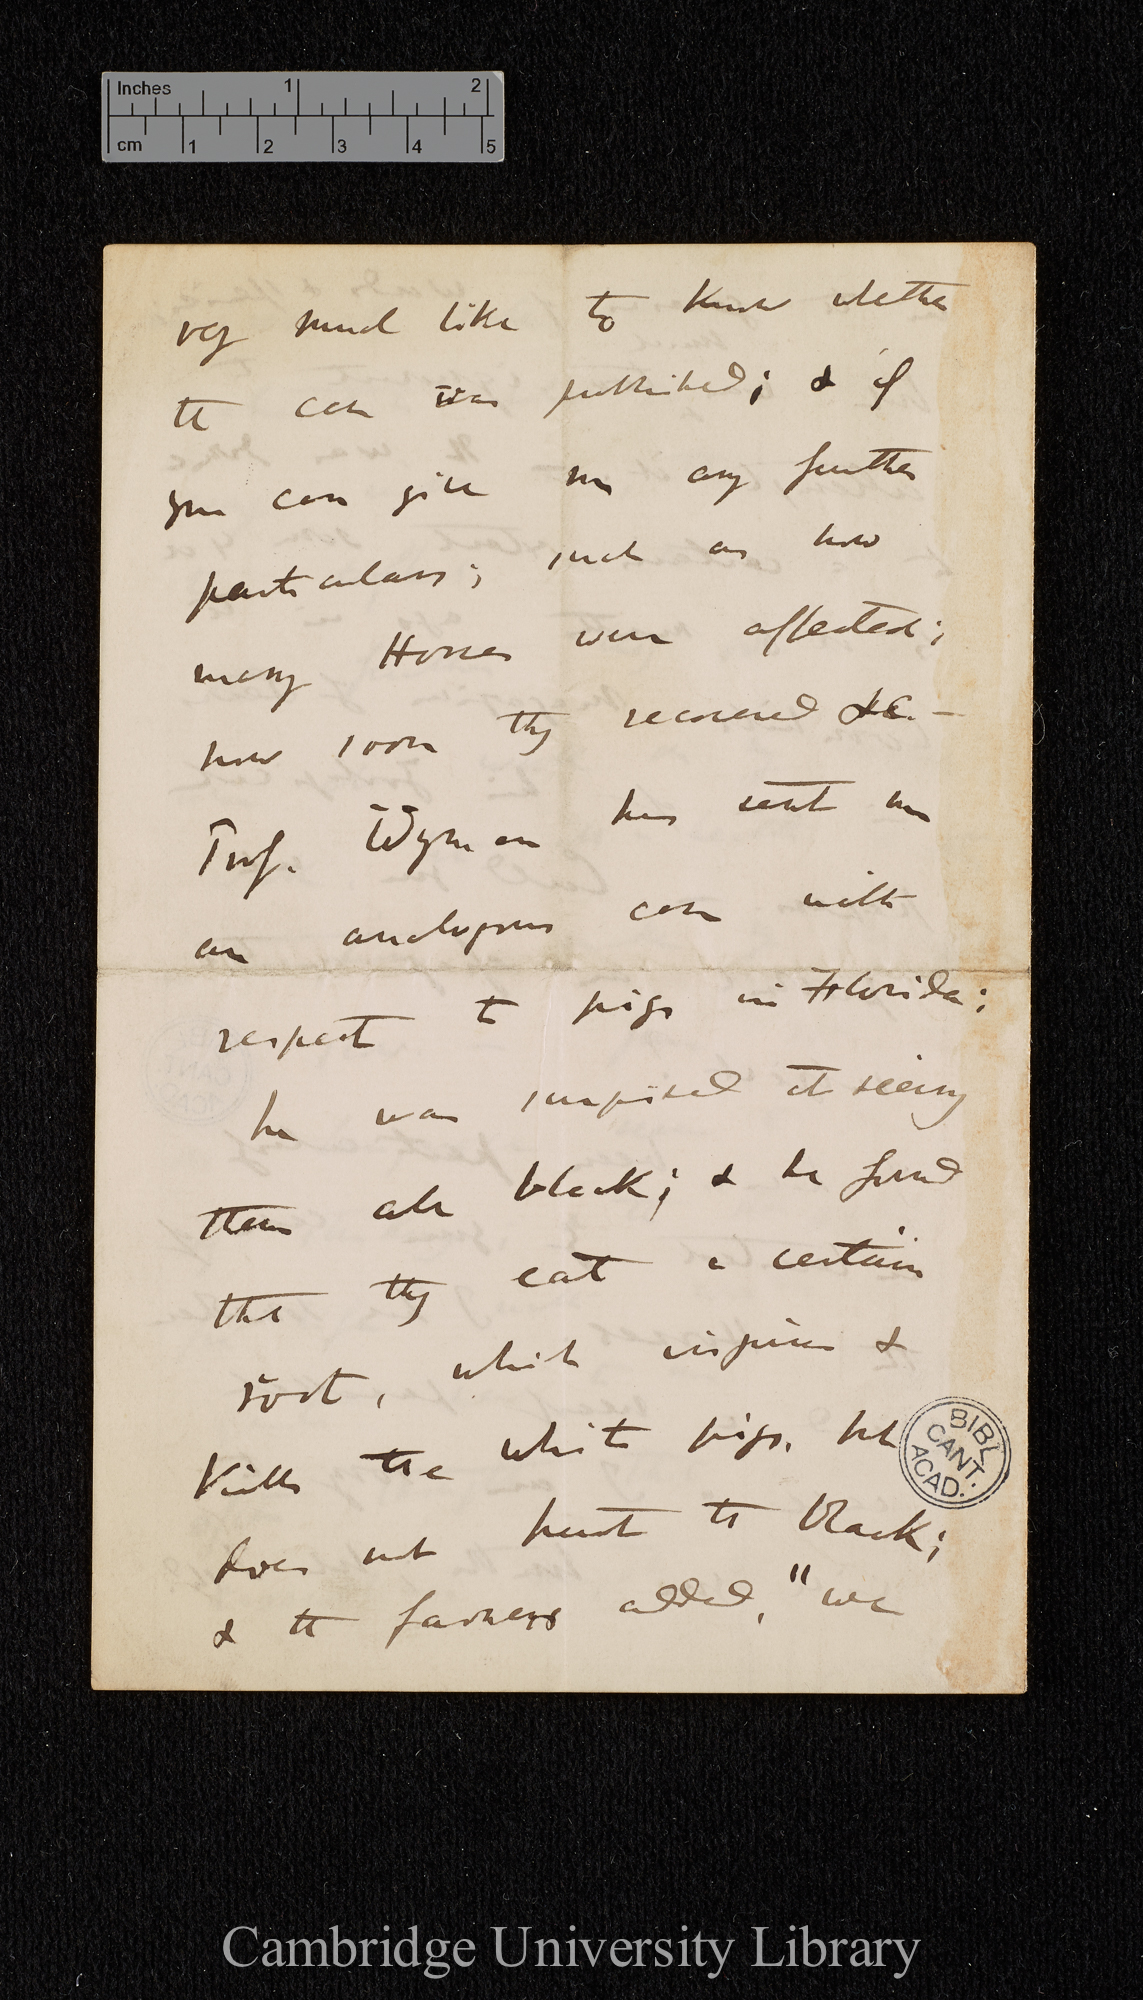 Inches 1 2
cm 1 2 3 4 5
very much like to know whether
the case was published; & if
you can give me any further
particulars; such as how
many Horses were affected;
how soon they recovered &c.—
Prof. Wyman has sent me
an analogous case with
respect to pigs in Florida;
he was surprised at seeing
them all black; & he found
that they eat a certain
root, which injures &
kills the white pigs, but
does not hurt the black;
& the farmers added, "we
BIBL.
CANT.
ACAD.
Cambridge University Library